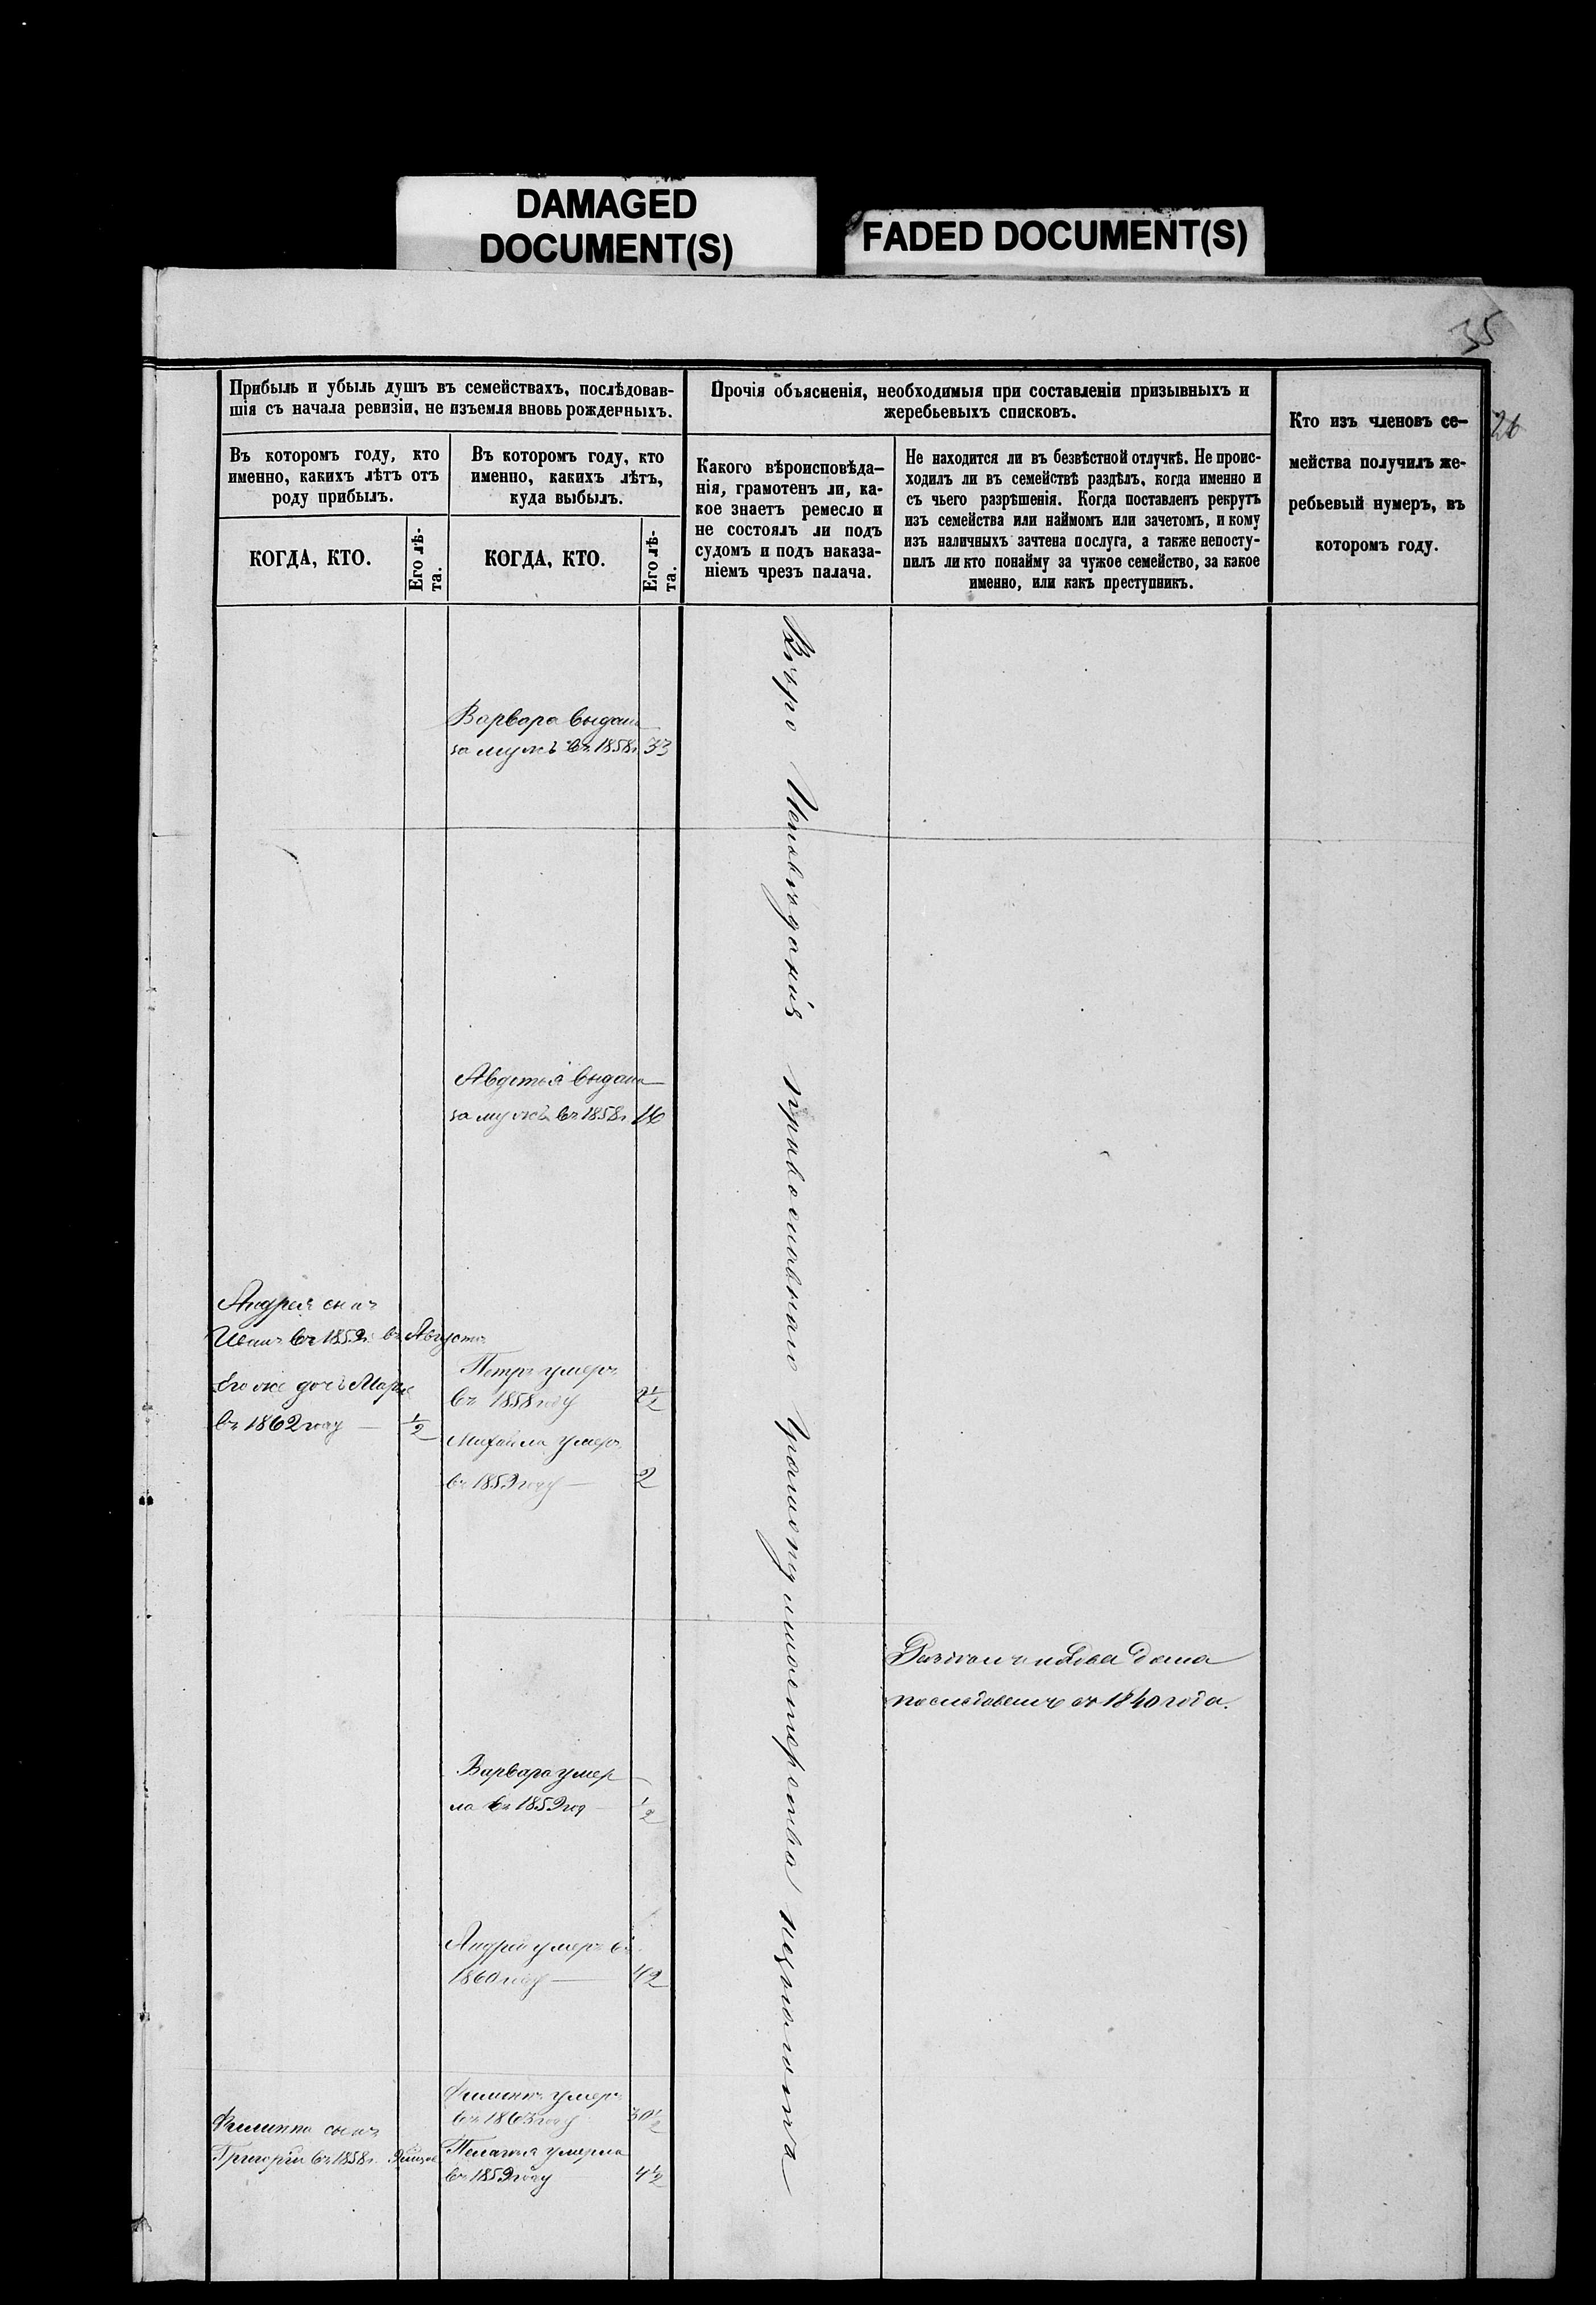 DAMAGED
DOCUMENT(S)
FADED DOCUMENT(S)
35
26
Прибыль и убыль душъ въ семействахъ, послѣдовав-
шія съ начала ревизіи, не изъемля вновь рожденныхъ.
Въ которомъ году, кто
именно, какихъ лѣтъ отъ
роду прибылъ.
КОГДА, КТО.
Его лѣ-
та.
Въ которомъ году, кто
именно, какихъ лѣтъ,
куда выбылъ.
КОГДА, КТО.
Его лѣ-
та.
Прочія объясненія, необходимыя при составленіи призывныхъ и
жеребьевыхъ списковъ.
Какого вѣроисповѣда-
нія, грамотенъ ли, ка-
кое знаетъ ремесло и
не состоялъ ли подъ
судомъ и подъ наказа-
ніемъ чрезъ палача.
Не находится ли въ безвѣстной отлучкѣ. Не проис-
ходилъ ли въ семействѣ раздѣлъ, когда именно и
съ чьего разрѣшенія. Когда поставленъ рекрутъ
изъ семейства или наймомъ или зачетомъ, и кому
изъ наличныхъ зачтена послуга, а также непосту-
пилъ ли кто понайму за чужое семейство, за какое
именно, или какъ преступникъ.
Кто изъ членовъ се-
мейства получилъ же-
ребьевый нумеръ, въ
которомъ году.
Варвара выдана
за мужъ въ 1858г 33
Авдотья выдана
за мужъ въ 1858г 16
Андрея сынъ
Иванъ въ 1859г въ Августѣ
Его же дочь Марья
въ 1862 году — ½
Петръ умеръ
въ 1858 году
Михаила умеръ
въ 1859 году — 2
Вѣро Исповѣданія православнаго
на два дома
последовалъ въ 1840 года.
Варвара умер
ла въ 1859 год — ½
Андрей умеръ въ
1860 году — 42
Филиппъ умеръ
въ 1863 году 30½
Филиппа сынъ
Григорій въ 1858г.
Пелагея умерла
въ 1859 году 4½